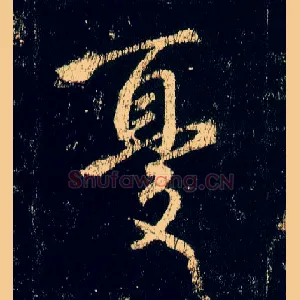 夏
Shufawang.CN